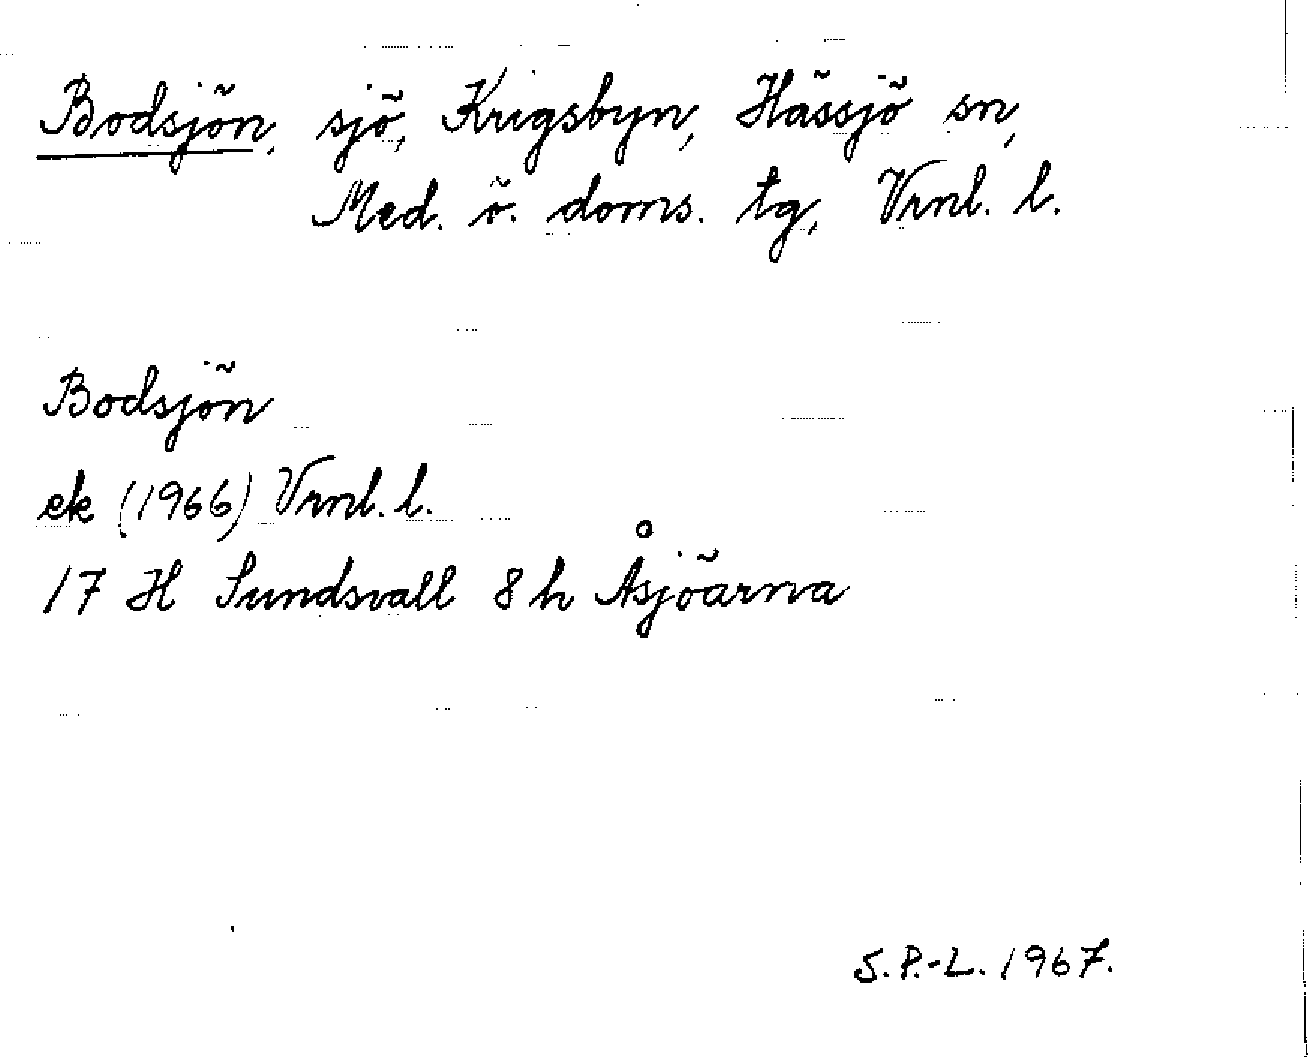 Bodsjön, sjö, Krigsbyn, Hässjö sn,
Med. ö. doms. tg, Vrnl. l.
Bodsjön
ek (1966) Vrnl. l.
17 H Sundsvall 8 h Åsjöarna
S.P.-L. 1967.